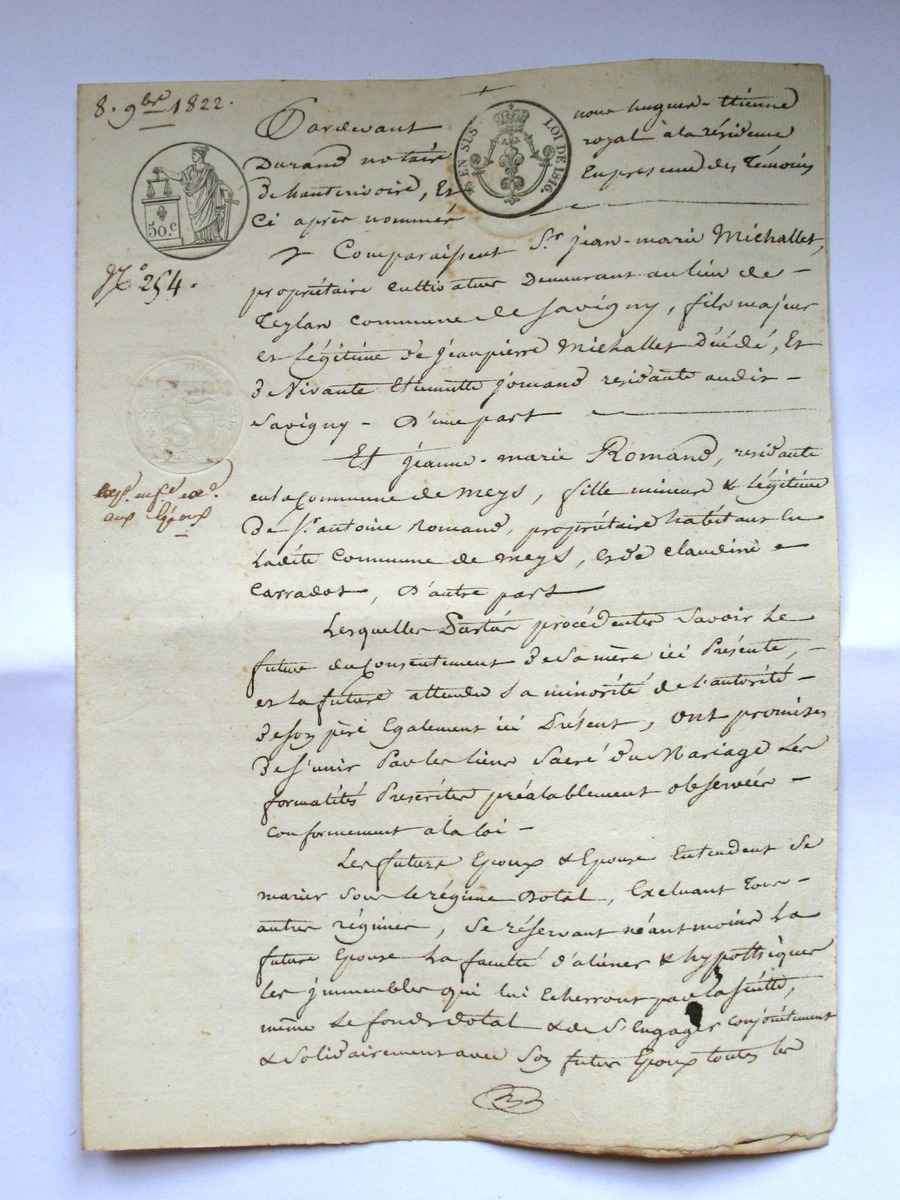 8. 9bre 1822.
Pardevant nous hugues-Etienne
Durand notaire royal à la résidence
De hauterivoire, Et En presence des Témoins
Ci après nommés
EN SUS LOI DE 1816.
50.c
N.o 254.
Comparaissent Sr. jean-marie Michallet,
propriétaire cultivateur Demeurant au lieu de
Teylan commune de Savigny, fils majeur
et légitime de jeanpierre Michallet Décédé, Et
De Vivante Etiennette jomand residante audit
Savigny - D'une part
Et jeanne-marie Romand, residante
en la commune de meys, fille mineure & légitime
De Sr. antoine Romand, propriétaire habitant En
Ladite Commune de meys, et de claudine
Carradot, D'autre part
exp. en
aux Epoux
Lesquelles Parties procédentes Savoir Le
futur du Consentement De sa mère ici Présente,
et la future attendu Sa minorité de l'autorité
De son père Egalement ici Présent, ont promis
De S'unir Par les liens Sacré du Mariage Les
formalités Prescrites préalablement observées
conformement a la loi -
Les futurs Epoux & Epouse Entendent Se
marier Sous le régime Dotal, Excluant Tous
autres régimes, Se réservant néantmoins La
future Epouse La faculté d'aliéner & hypothéquer
les jmmeubles qui lui Echerront par la suitte,
même Le fonds dotal & de S'Engager conjointement
& Solidairement avec Son futur Epoux toutes les